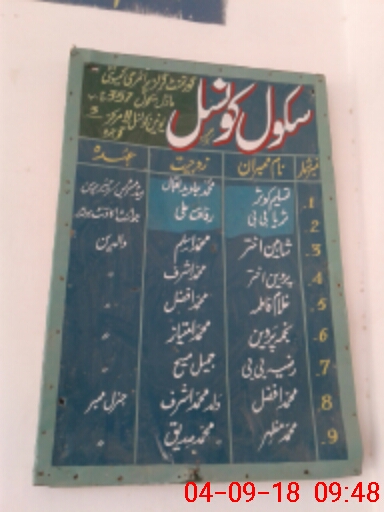 گورنمنٹ گرلز پرائمری کمیونٹی
ماڈل سکول 357
سکول کونسل
نمبر شمار نام ممبران زوجیت عہدہ
1. تسلیم کوثر محمد جاوید اقبال
2. ثریا بی بی رفاقت علی
3. شاہین اختر محمد اسلم والدین
4. پروین اختر محمد اشرف 〃
5. غلام فاطمہ محمد افضل 〃
6. نجمہ پروین محمد امتیاز 〃
7. رضیہ بی بی جمیل مسیح 〃
8. محمد افضل ولد محمد اشرف جنرل ممبر
9. محمد مظہر 〃 محمد صدیق 〃
04-09-18 09:48